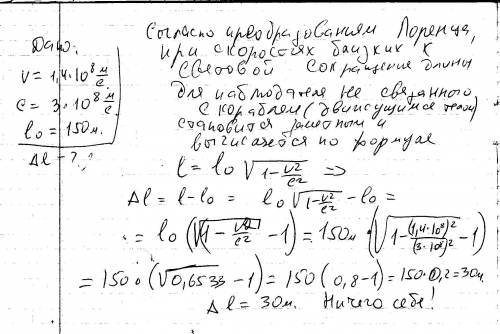 Дано:
V = 1,4·10⁸ м/с
c = 3·10⁸ м/с
l₀ = 150 м.
Δl - ?
Согласно преобразованиям Лоренца,
при скоростях близких к
световой сокращение длины
для наблюдателя не связанного
с кораблем (движущимся телом)
становится заметным и
вычисляется по формуле
l = l₀ √(1 - v²/c²) ⇒
Δl = l - l₀ = l₀ √(1 - v²/c²) - l₀ =
= l₀ (√(1 - v²/c²) - 1) = 150м · (√(1 - (1,4·10⁸)²/(3·10⁸)²) - 1)
= 150 · (√0,6533 - 1) = 150 (0,8 - 1) = 150·0,2 = 30м.
Δl = 30м. Ничего себе!